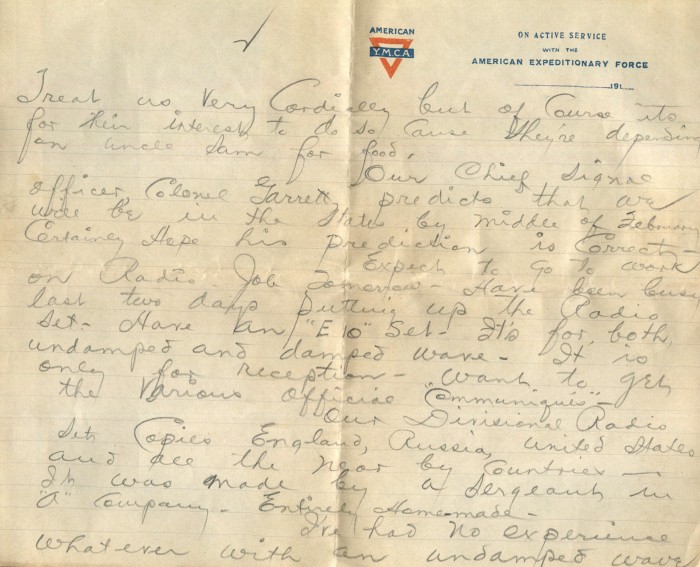 AMERICAN
Y.M.C.A
ON ACTIVE SERVICE
WITH THE
AMERICAN EXPEDITIONARY FORCE
191
Treat us Very Cordially but of Course its
for their interest to do so Cause they're depending
on uncle Sam for food.
Our Chief Signal
officer, Colonel Garrett, predicts that we
will be in the States by middle of February
Certainly Hope his prediction is Correct-
Expect to go to work
on Radio Job tomorrow- Have been busy
last two days putting up the Radio
Set- Have an "E10" Set- It's for both,
undamped and damped wave- It is
only for reception- Want to get
the Various Official "Communiqués"-
Our Divisional Radio
Set Copies England, Russia, United States
and all the near by Countries-
It was made by a Sergeant in
"A" Company- Entirely Home-made-
I've had no experience
whatever with an undamped wave